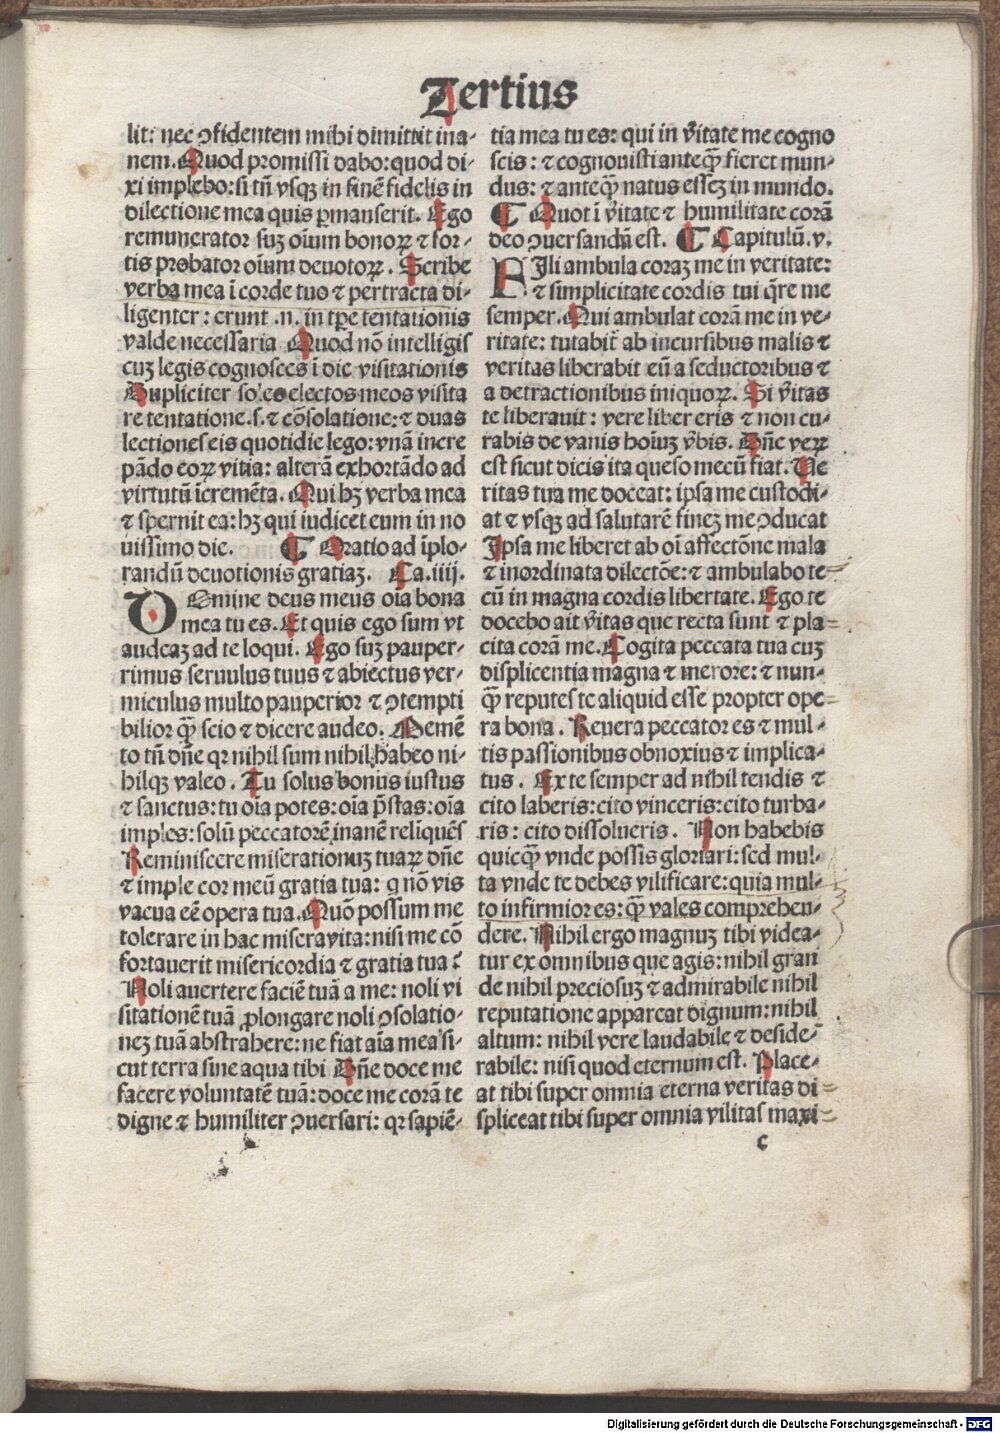 Tertius
lit: nec ꝯfidentem mihi dimittit ina-
nem. Quod promissi dabo: quod di-
xi implebo: si tñ vsqꝫ in finẽ fidelis in
dilectione mea quis ꝑmanserit. Ego
remunerator suꝫ oĩum bonoꝝ ⁊ for-
tis probator oĩum deuotoꝝ. Scribe
verba mea ĩ corde tuo ⁊ pertracta di-
ligenter: erunt .n. in tꝑe tentationis
valde necessaria Quod nõ intelligis
cuꝫ legis cognosces ĩ die visitationis
Dupliciter soleo electos meos visita
re tentatione.s.⁊ cõsolatione: ⁊ duas
lectiones eis quotidie lego: vnã incre
pãdo eoꝝ vitia: alterã exhortãdo ad
virtutũ ĩcremẽta. Qui hꝫ verba mea
⁊ spernit ea: hꝫ qui iudicet eum in no
uissimo die. ¶ Oratio ad ĩplo-
randũ deuotionis gratiaꝫ. Ca.iiij.
DOmine deus meus oĩa bona
mea tu es. Et quis ego sum vt
audeaꝫ ad te loqui. Ego suꝫ pauper-
rimus seruulus tuus ⁊ abiectus ver-
miculus multo pauperior ⁊ ꝯtempti
bilior qꝫ̃ scio ⁊ dicere audeo. Memẽ
to tñ dñe qr nihil sum nihil habeo ni-
hilqꝫ valeo. Tu solus bonus iustus
⁊ sanctus: tu oĩa potes: oĩa p̃stas: oĩa
imples: solũ peccatorẽ inanẽ relĩquẽs
Reminiscere miserationuꝫ tuaꝝ dñe
⁊ imple cor meũ gratia tua: q nõ vis
vacua eẽ opera tua. Quõ possum me
tolerare in hac misera vita: nisi me cõ
fortauerit misericordia ⁊ gratia tua?
Noli auertere faciẽ tuã a me: noli vi
sitationẽ tuã ꝓlongare noli ꝯsolatio-
neꝫ tuã abstrahere: ne fiat aĩa mea si-
cut terra sine aqua tibi Dñe doce me
facere voluntatẽ tuã: doce me corã te
digne ⁊ humiliter ꝯuersari: qr sapiẽ-
tia mea tu es: qui in ṽitate me cogno
scis: ⁊ cognouisti anteqꝫ̃ fieret mun-
dus: ⁊ anteqꝫ̃ natus esseꝫ in mundo.
¶ Quot ĩ ṽitate ⁊ humilitate corã
deo ꝯuersandũ est. ¶ Capitulũ.v.
FIli ambula coraꝫ me in veritate:
⁊ simplicitate cordis tui q̃re me
semper. Qui ambulat corã me in ve-
ritate: tutabit̃ ab incursibus malis ⁊
veritas liberabit eũ a seductoribus ⁊
a detractionibus iniquoꝝ. Si ṽitas
te liberauit: vere liber eris ⁊ non cu-
rabis de vanis hoĩuꝫ ṽbis. Dñe veꝝ
est sicut dicis ita queso mecũ fiat. Ve
ritas tua me doceat: ipsa me custodi-
at ⁊ vsqꝫ ad salutarẽ fineꝫ me ꝯducat
Ipsa me liberet ab oĩ affectõne mala
⁊ inordinata dilectõe: ⁊ ambulabo te-
cũ in magna cordis libertate. Ego te
docebo ait ṽitas que recta sunt ⁊ pla-
cita corã me. Cogita peccata tua cuꝫ
displicentia magna ⁊ merore: ⁊ nun-
qꝫ̃ reputes te aliquid esse propter ope-
ra bona. Reuera peccator es ⁊ mul-
tis passionibus obnoxius ⁊ implica-
tus. Ex te semper ad nihil tendis ⁊
cito laberis: cito vinceris: cito turba-
ris: cito dissolueris. Non habebis
quicqꝫ̃ vnde possis gloriari: sed mul-
ta vnde te debes vilificare: quia mul-
to infirmior es: qꝫ̃ vales comprehen-
dere. Nihil ergo magnuꝫ tibi videa-
tur ex omnibus que agis: nihil gran
de nihil preciosuꝫ ⁊ admirabile nihil
reputatione appareat dignum: nihil
altum: nihil vere laudabile ⁊ deside-
rabile: nisi quod eternum est. Place-
at tibi super omnia eterna veritas di-
spliceat tibi super omnia vilitas maxi-
c
Digitalisierung gefördert durch die Deutsche Forschungsgemeinschaft - DFG